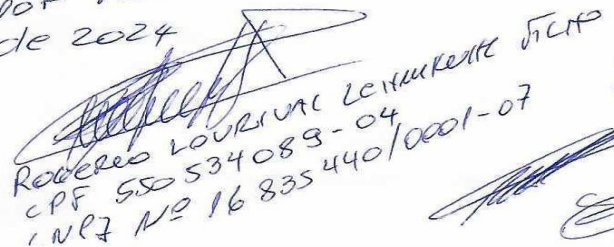 de 2024
ROGERIO LOURIVAL
CPF 550534089-04
CNPJ Nº 16835440/0001-07